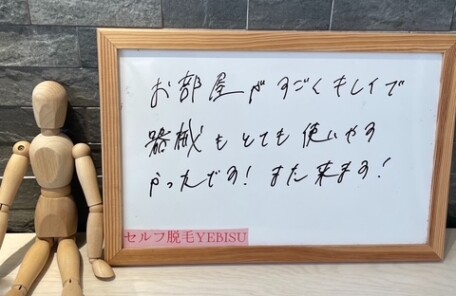 お部屋がすごくキレイで
器械もとても使いやす
かったです！また来ます！
セルフ脱毛YEBISU